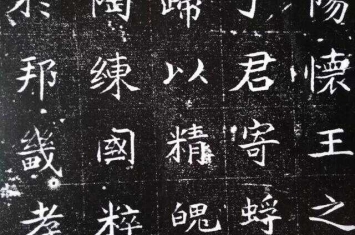 陽懷王之
君寄蜉
歸以精魄
陶練國粹
於邦畿孝